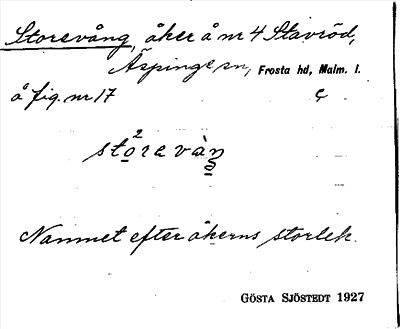 Storsvång, åker å nr 4 Stavröd,
Äspinge sn, Frosta hd, Malm. l.
å fig. nr 17 Ç
Namnet efter åkerns storlek.
GÖSTA SJÖSTEDT 1927